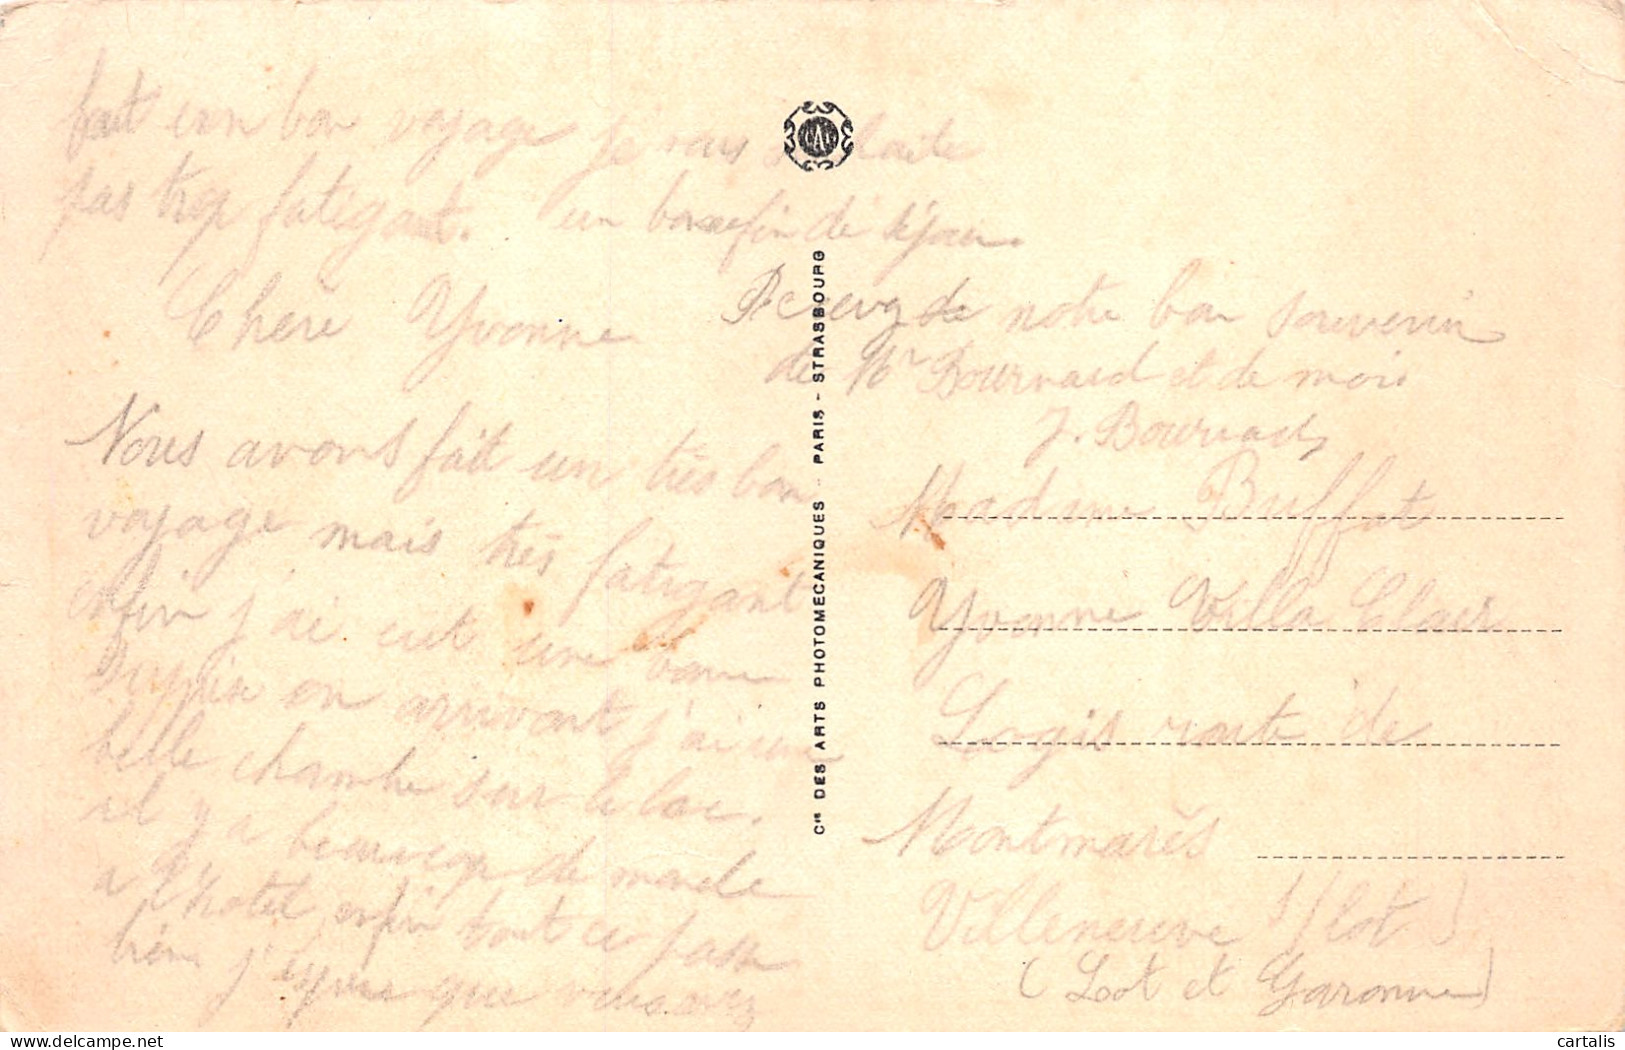 Chère Yvonne
Nous avons fait un très bon
voyage mais très fatigant
enfin j'ai eut une bonne
en arrivant j'ai une
belle chambre sur le lac.
il y a beaucoup de monde
a l'hotel enfin tout ce passe
bien j'espère que vous avez
fait un bon voyage je vous souhaite
pas trop fatigant. un bonne fin de séjour.
Recevez de notre bon souvenir
de Mr Bournard et de moi
J. Bournard
CAP
Cie DES ARTS PHOTOMECANIQUES - PARIS - STRASBOURG
Madame Buffat
Yvonne Villa Clair
Logis route de
Montmarès
Villeneuve s/lot
(Lot et Garonne)
cartalis